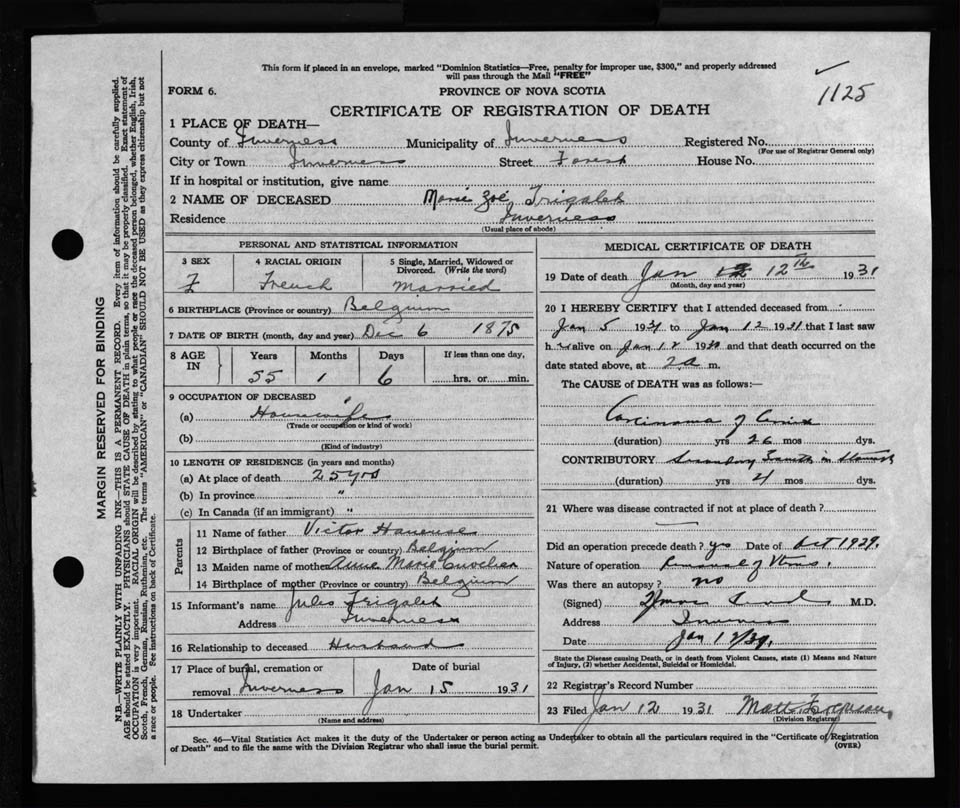 This form if placed in an envelope, marked "Dominion Statistics—Free, penalty for improper use, $300," and properly addressed
will pass through the Mail "FREE"
1125
FORM 6.
PROVINCE OF NOVA SCOTIA
CERTIFICATE OF REGISTRATION OF DEATH
1 PLACE OF DEATH—
County of Inverness Municipality of Inverness Registered No.
(For use of Registrar General only)
City or Town Inverness Street Forest House No.
If in hospital or institution, give name
2 NAME OF DECEASED Marie Zoé Trigalet
Residence Inverness
(Usual place of abode)
PERSONAL AND STATISTICAL INFORMATION
3 SEX 4 RACIAL ORIGIN 5 Single, Married, Widowed or
Divorced. (Write the word)
F French Married
6 BIRTHPLACE (Province or country) Belgium
7 DATE OF BIRTH (month, day and year) Dec 6 1875
8 AGE IN Years Months Days If less than one day,
55 1 6 hrs. or min.
9 OCCUPATION OF DECEASED
(a) Housewife
(Trade or occupation or kind of work)
(b)
(Kind of industry)
10 LENGTH OF RESIDENCE (in years and months)
(a) At place of death 25 yrs
(b) In province "
(c) In Canada (if an immigrant) "
Parents
11 Name of father Victor
12 Birthplace of father (Province or country) Belgium
13 Maiden name of mother Anne Marie
14 Birthplace of mother (Province or country) Belgium
15 Informant's name Jules Trigalet
Address Inverness
16 Relationship to deceased Husband
17 Place of burial, cremation or Date of burial
removal Inverness Jan 15 1931
18 Undertaker
(Name and address)
MEDICAL CERTIFICATE OF DEATH
19 Date of death Jan 12th 1931
(Month, day and year)
20 I HEREBY CERTIFY that I attended deceased from
Jan 5 1931 to Jan 12 1931 that I last saw
h er alive on Jan 12 19 and that death occurred on the
date stated above, at 2 a m.
The CAUSE of DEATH was as follows:—
Carcinoma of Cervix
(duration) yrs 26 mos dys.
CONTRIBUTORY Secondary in Stomach
(duration) yrs 4 mos dys.
21 Where was disease contracted if not at place of death?
Did an operation precede death? yes Date of Oct 1929.
Nature of operation Removal of Uterus.
Was there an autopsy? no
(Signed) M.D.
Address Inverness
Date Jan 12/31.
State the Disease causing Death, or is death from Violent Causes, state (1) Means and Nature
of Injury, (2) whether Accidental, Suicidal or Homicidal.
22 Registrar's Record Number
23 Filed Jan 12 1931 Matt Ferguson
(Division Registrar)
Sec. 46—Vital Statistics Act makes it the duty of the Undertaker or person acting as Undertaker to obtain all the particulars required in the "Certificate of Registration
of Death" and to file the same with the Division Registrar who shall issue the burial permit.
(OVER)
MARGIN RESERVED FOR BINDING
N.B.—WRITE PLAINLY WITH UNFADING INK—THIS IS A PERMANENT RECORD. Every item of information should be carefully supplied.
AGE should be stated EXACTLY. PHYSICIANS should STATE CAUSE OF DEATH in plain terms, so that it may be properly classified. Exact statement of
OCCUPATION is very important. RACIAL ORIGIN will be described by stating to what people or race the deceased person belonged, whether English, Irish,
Scotch, French, German, Russian, Ruthenian, etc. The terms "AMERICAN" or "CANADIAN" SHOULD NOT BE USED as they express citizenship but not
a race or people. See instructions on back of Certificate.